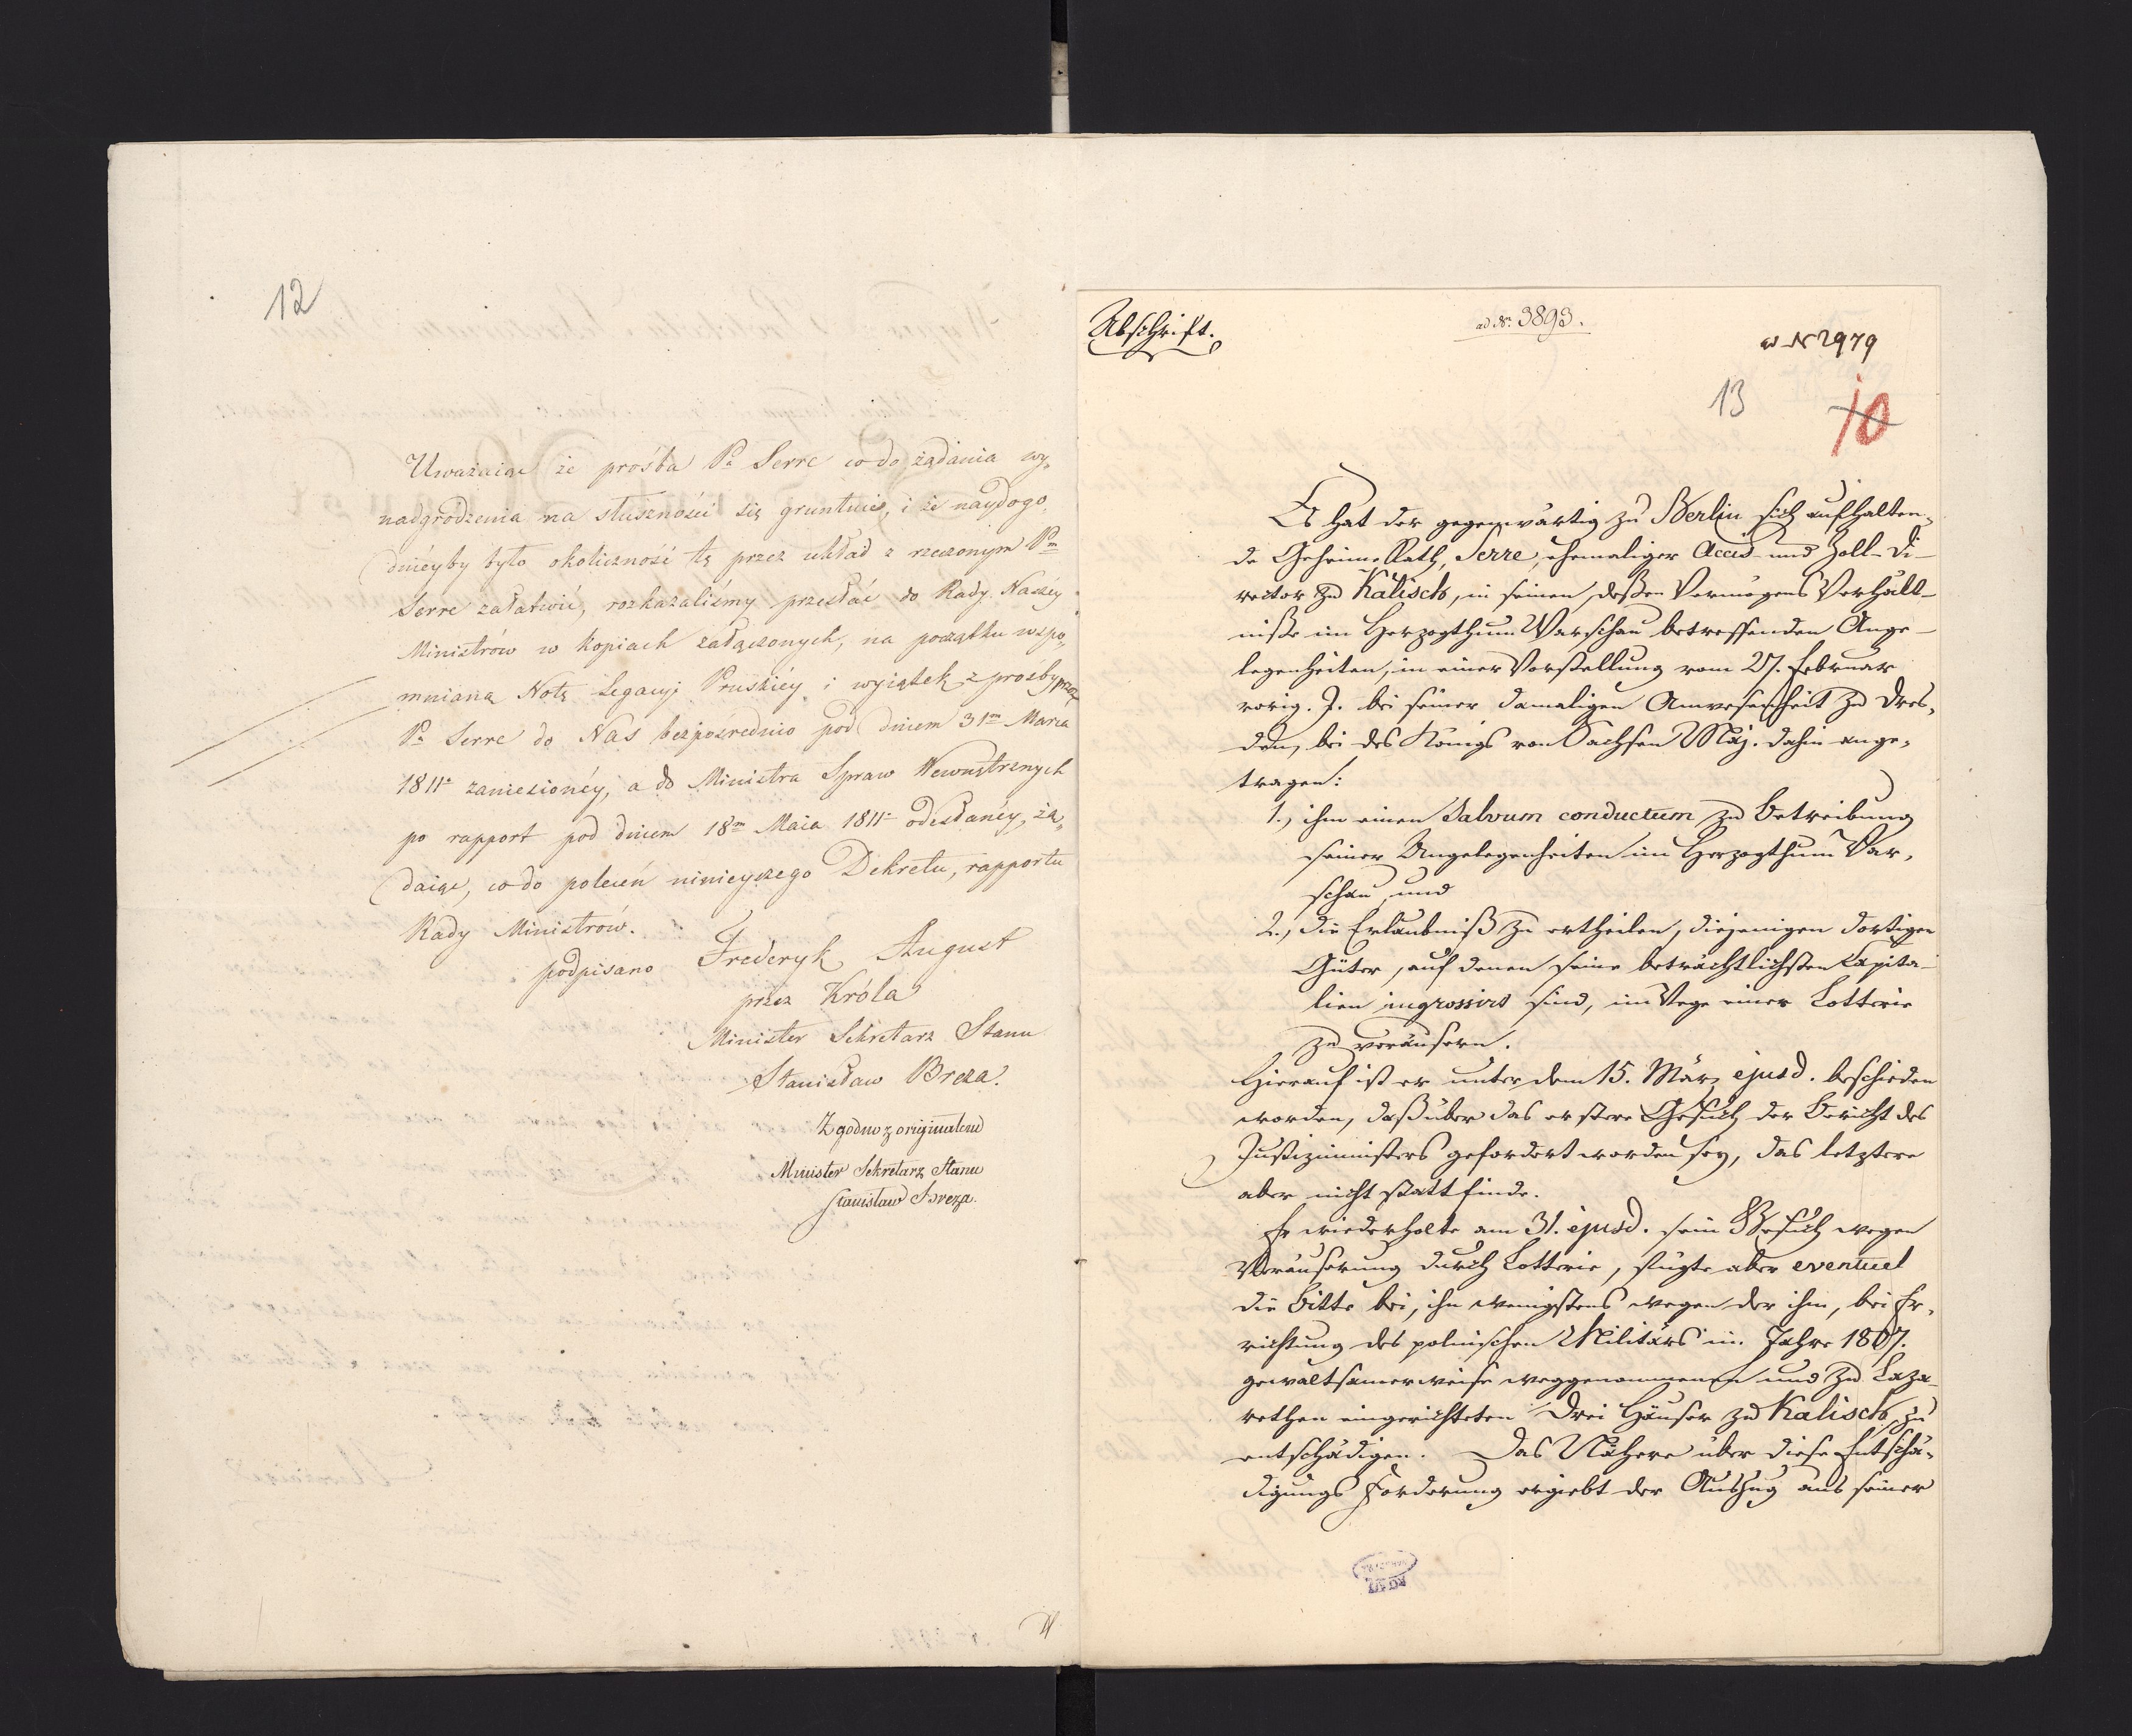 12
Uważaiąc że prośba Pa Serre co do żądania wy„
nadgrodzenia na słuszności się gruntuie, i że naydogo„
dniéyby było okoliczność tę przez układ z rzeczonym Pm
Serre załatwić, rozkazaliśmy przesłać do Rady Naszéy
Ministrów w kopiach załączonych, na początku wspo„
mnianą Notę Legacyi Pruskiéy i wyiątek z prośby przez
Pa Serre do Nas bezpośrednio pod dniem 31m Marca
1811o zaniesionéy, a do Ministra Spraw Wewnętrznych
po rapport pod dniem 18m Maia 1811o odesłanéy, żą„
daiąc, co do poleceń ninieyszego Dekretu, rapportu
Rady Ministrów.
podpisano Frederyk August
przez Króla
Minister Sekretarz Stanu
Stanisław Breza.
Zgodno z originałem
Minister Sekretarz Stanu
Stanisław Breza.
Abschrift.
ad No: 3893.
w N 2979
13
10
Es hat der gegenwärtig zu Berlin sich aufhalten-
de Geheime Rath, Serre, ehemaliger Accis- und Zoll-Di-
rector zu Kalisch, in seinen, deßen Vermögens Verhält-
niße im Herzogthum Warschau betreffenden Ange-
legenheiten, in einer Vorstellung vom 27. Februar
vorig. J. bei seiner damaligen Anwesenheit zu Dres-
den, bei des Königs von Sachsen Maj. dahin ange-
tragen:
1., ihm einen Salvum conductum zu Betreibung
seiner Angelegenheiten im Herzogthum War-
schau, und
2., die Erlaubniß zu ertheilen, diejenigen dortigen
Güter, auf denen seine beträchtlichsten Capita-
lien ingrossirt sind, im Wege einer Lotterie
zu veräusern.
Hierauf ist er unter dem 15. März ejusd. beschieden
worden, daß über das erstere Gesuch der Bericht des
Justizministers gefordert worden sey, das letztere
aber nicht statt finde.
Er wiederholte am 31. ejusd. sein Gesuch wegen
Veräuserung durch Lotterie, fügte aber eventuel
die Bitte bei, ihn wenigstens wegen der ihm, bei Er-
richtung des polnischen Militärs im Jahre 1807.
gewaltsamerweise weggenommenen und zu Laza-
rethen eingerichteten drei Häuser zu Kalisch, zu
entschädigen. Das Nähere über diese Entschä-
digungs Forderung ergiebt der Auszug aus seiner